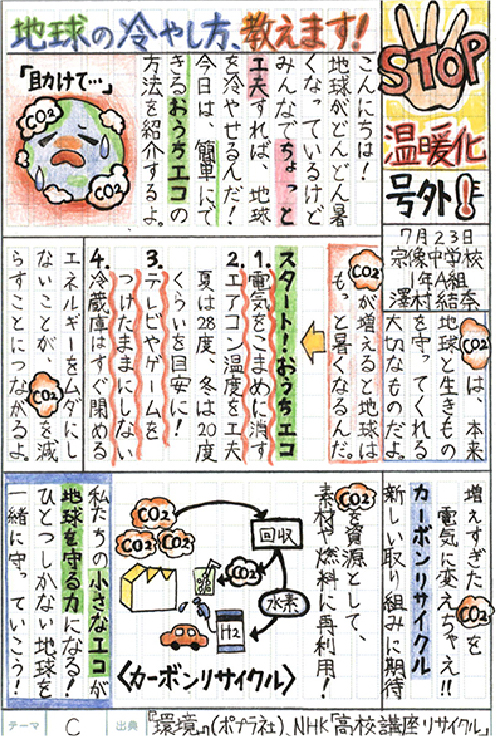 地球の冷やし方、教えます!
STOP
温暖化
号外!
7月23日
宗像中学校
1年A組
澤村結奈
「助けて…」
CO2
CO2
CO2
こんにちは!
地球がどんどん暑
くなっているけど
みんなでちょっと
工夫すれば、地球
を冷やせるんだ!
今日は、簡単にで
きるおうちエコの
方法を紹介するよ。
CO2は、本来
地球と生きもの
を守ってくれる
大切なものだよ。
CO2が増えると地球は
もっと暑くなるんだ。
スタート!おうちエコ
1.電気をこまめに消す
2.エアコン温度を工夫
夏は28度、冬は20度
くらいを目安に!
3.テレビやゲームを
つけたままにしない
4.冷蔵庫はすぐ閉める
エネルギーをムダにし
ないことが、CO2を減
らすことにつながるよ。
増えすぎたCO2を
電気に変えちゃえ!!
カーボンリサイクル
新しい取り組みに期待
CO2を資源として、
素材や燃料に再利用!
CO2
CO2
CO2
回収
CO2
水素
H2
〈カーボンリサイクル〉
私たちの小さなエコが
地球を守る力になる!
ひとつしかない地球を
一緒に守っていこう!
テーマ C 出典 『環境』(ポプラ社)、NHK「高校講座リサイクル」